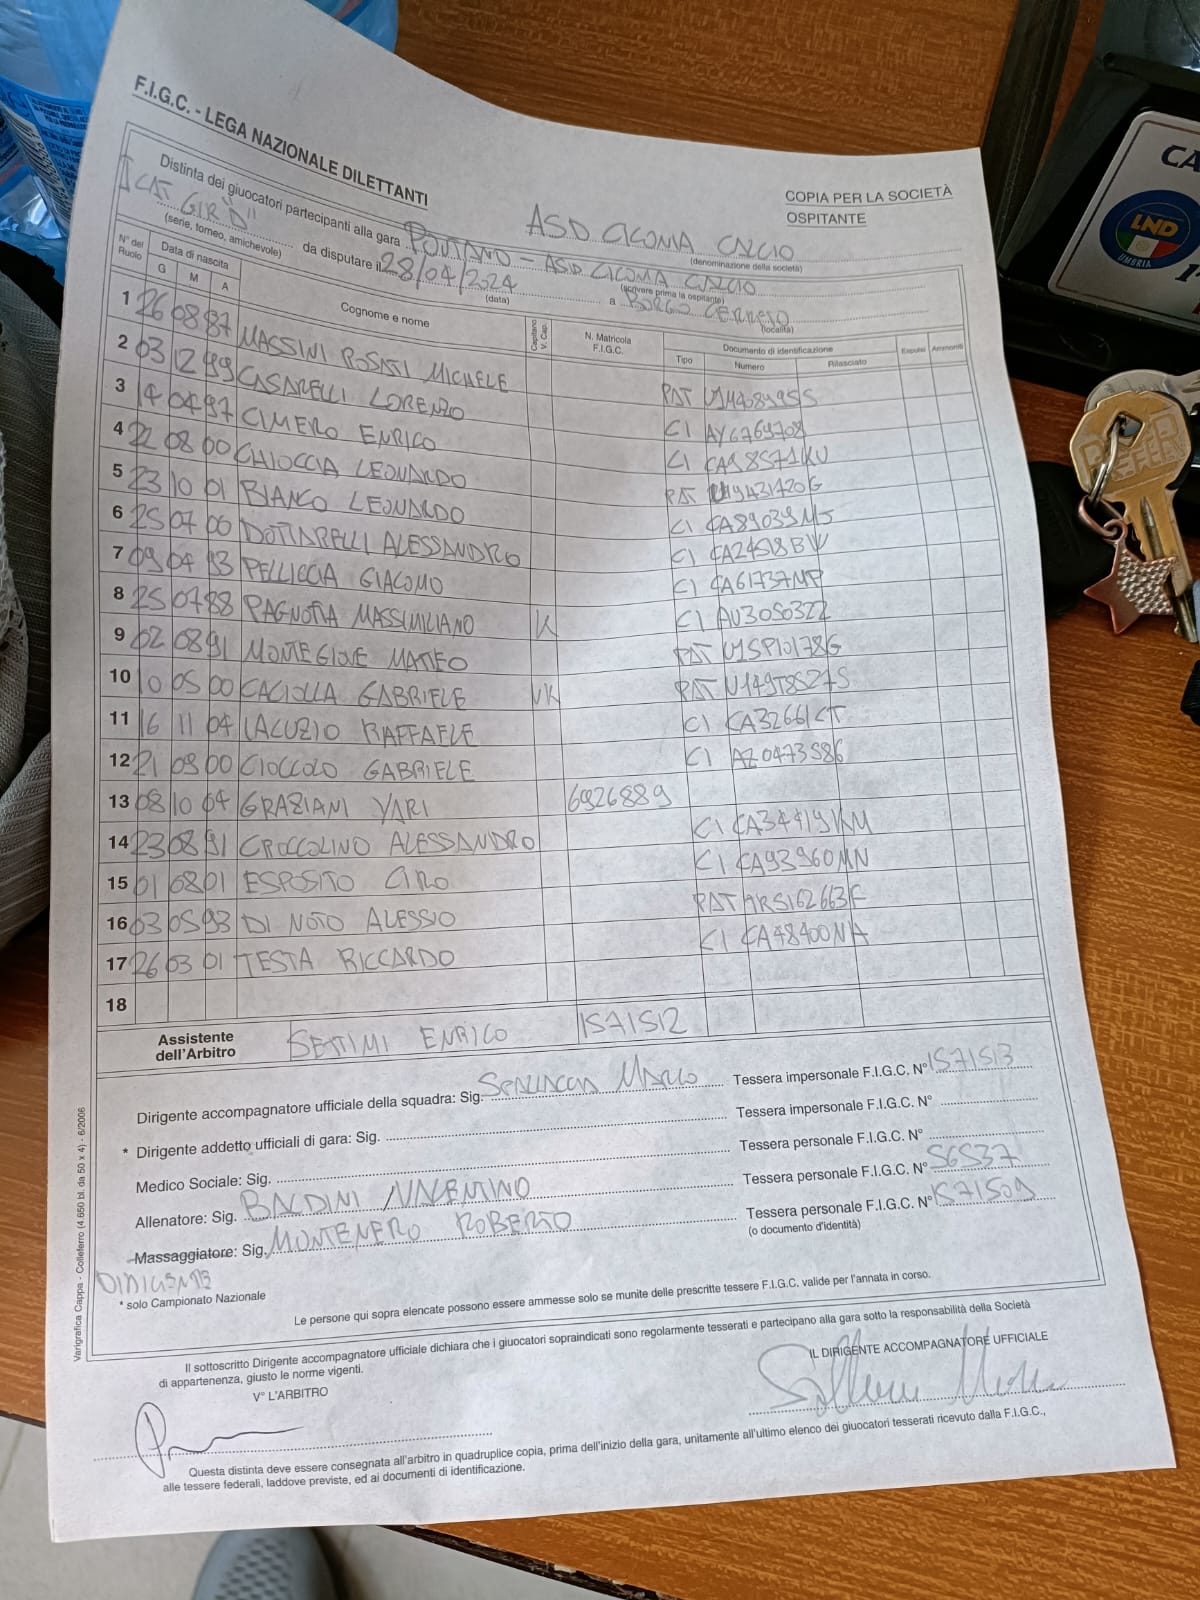 F.I.G.C. - LEGA NAZIONALE DILETTANTI
COPIA PER LA SOCIETÀ
OSPITANTE
ASD CICONIA CALCIO
(denominazione della società)
Distinta dei giuocatori partecipanti alla gara PONTANO - ASD CICONIA CALCIO
(scrivere prima la ospitante)
I CAT GIR "D" da disputare il 28/04/2024 a BORGO CERRETO
(serie, torneo, amichevole) (data) (località)
N° del Ruolo Data di nascita G M A Cognome e nome Capitano V. Cap. N. Matricola F.I.G.C. Documento di identificazione Tipo Numero Rilasciato Espulsi Ammoniti
1 26 08 87 MASSINI ROSATI MICHELE PAT U14089955
2 03 12 99 CASARELLI LORENZO CI AY6769708
3 14 04 97 CIMERO ENRICO CI CA18571KU
4 22 08 00 CHIOCCIA LEONARDO PAT
5 23 10 01 BIANCO LEONARDO CI CA89039MJ
6 25 07 00 DOTTARELLI ALESSANDRO CI CA24518BW
7 09 04 93 PELLICCIA GIACOMO CI CA61737MP
8 25 07 88 PAGNOTTA MASSIMILIANO K CI AU3050322
9 02 08 91 MONTEGIOVE MATTEO PAT U15P10178G
10 10 05 00 CACIOLLA GABRIELE VK PAT U149T8527S
11 16 11 04 IACUZIO RAFFAELE CI CA32661CT
12 21 09 00 CIOCCOLO GABRIELE CI AZ0473586
13 08 10 04 GRAZIANI YARI 6926889
14 23 08 91 CROCCOLINO ALESSANDRO CI CA34419KM
15 01 08 01 ESPOSITO CIRO CI CA93960MN
16 03 05 93 DI NOTO ALESSIO PAT
17 26 03 01 TESTA RICCARDO CI CA48400NA
18
Assistente dell'Arbitro SETTIMI ENRICO 1571512
Dirigente accompagnatore ufficiale della squadra: Sig. MARCO Tessera impersonale F.I.G.C. N° 1571513
* Dirigente addetto ufficiali di gara: Sig. Tessera impersonale F.I.G.C. N°
Medico Sociale: Sig. Tessera personale F.I.G.C. N°
Allenatore: Sig. BALDINI VALENTINO Tessera personale F.I.G.C. N° 56537
Massaggiatore: Sig. MONTENERO ROBERTO Tessera personale F.I.G.C. N° 1571509
(o documento d'identità)
DIRIGENTE
* solo Campionato Nazionale
Le persone qui sopra elencate possono essere ammesse solo se munite delle prescritte tessere F.I.G.C. valide per l'annata in corso.
Il sottoscritto Dirigente accompagnatore ufficiale dichiara che i giuocatori sopraindicati sono regolarmente tesserati e partecipano alla gara sotto la responsabilità della Società
di appartenenza, giusto le norme vigenti.
V° L'ARBITRO
IL DIRIGENTE ACCOMPAGNATORE UFFICIALE
Questa distinta deve essere consegnata all'arbitro in quadruplice copia, prima dell'inizio della gara, unitamente all'ultimo elenco dei giuocatori tesserati ricevuto dalla F.I.G.C.,
alle tessere federali, laddove previste, ed ai documenti di identificazione.
Varigrafica Cappa - Colleferro (4.650 bl. da 50 x 4) - 6/2006
CA
LND
UMBRIA